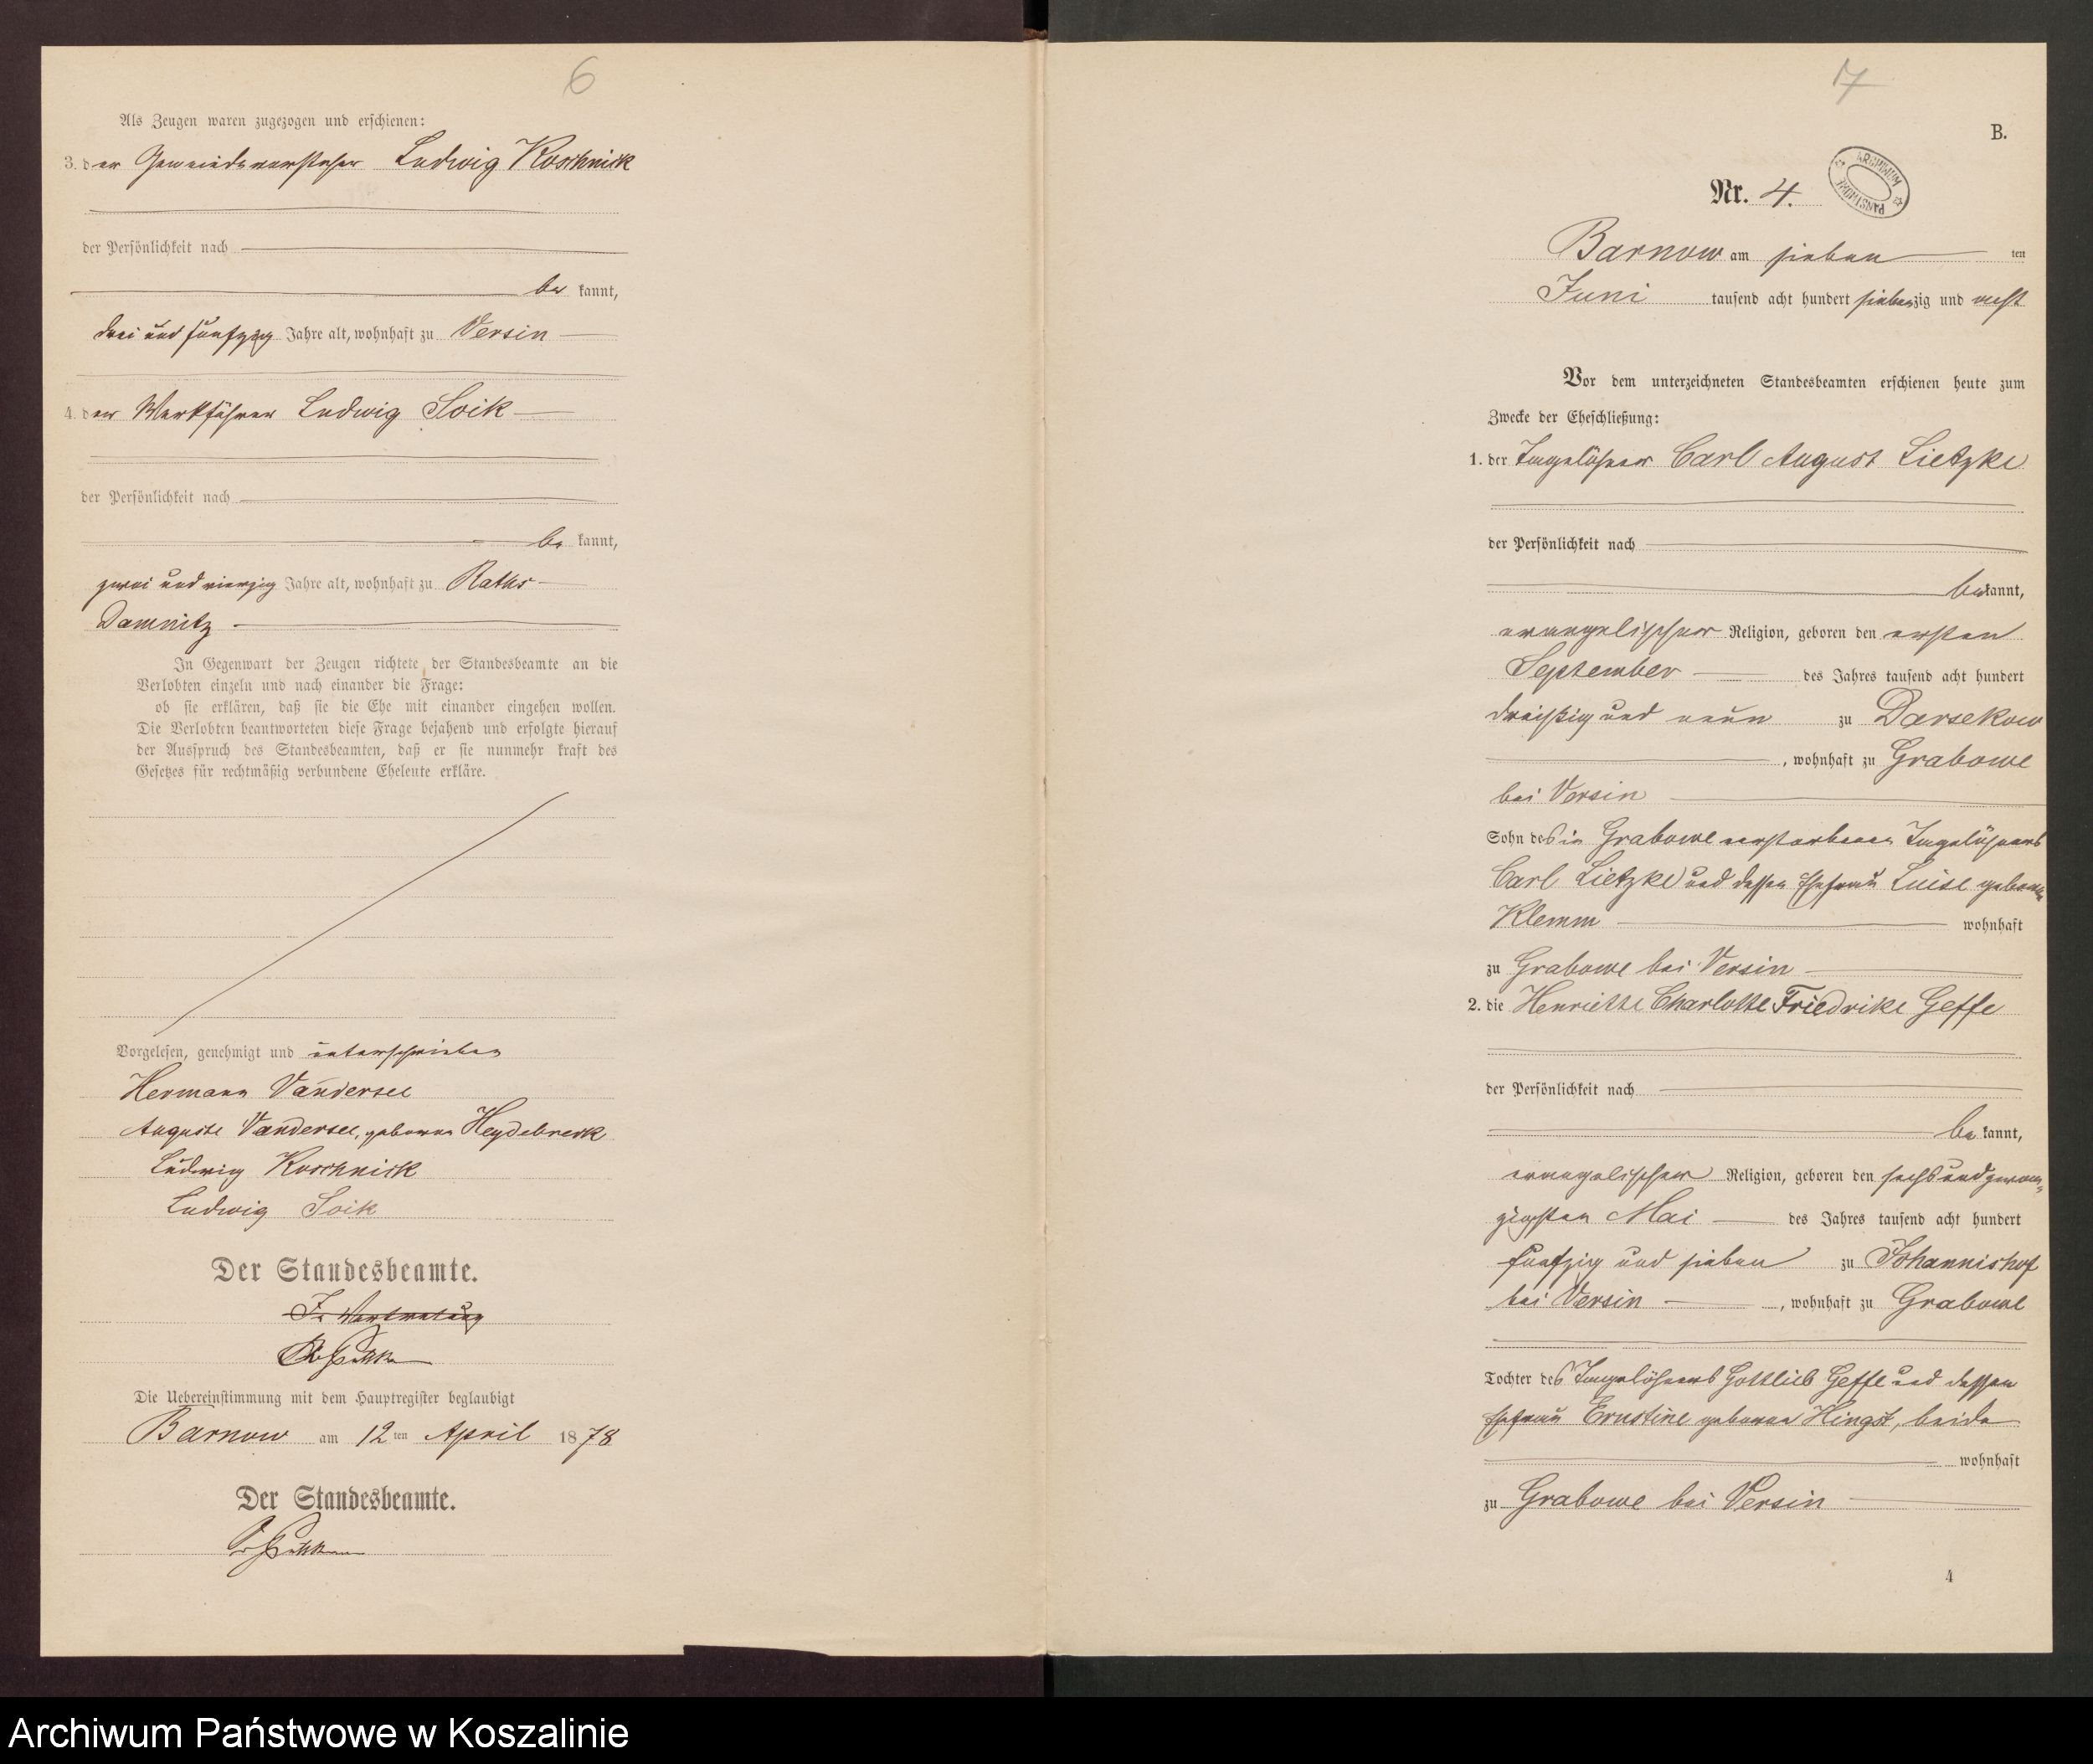 6
Als Zeugen waren zugezogen und erschienen:
3. der Gemeindevorsteher Ludwig Koschnick
der Persönlichkeit nach
be kannt,
drei und fünfzig Jahre alt, wohnhaft zu Versin
4. der Werkführer Ludwig Soik
der Persönlichkeit nach
be kannt,
zwei und vierzig Jahre alt, wohnhaft zu Raths-
Damnitz
In Gegenwart der Zeugen richtete der Standesbeamte an die
Verlobten einzeln und nach einander die Frage:
ob sie erklären, daß sie die Ehe mit einander eingehen wollen.
Die Verlobten beantworteten diese Frage bejahend und erfolgte hierauf
der Ausspruch des Standesbeamten, daß er sie nunmehr kraft des
Gesetzes für rechtmäßig verbundene Eheleute erkläre.
Vorgelesen, genehmigt und unterschrieben
Hermann Vandersee
Auguste Vandersee, geborne Heydebreck
Ludwig Koschnick
Ludwig Soik
Der Standesbeamte.
In Vertretung
Die Uebereinstimmung mit dem Hauptregister beglaubigt
Barnow am 12ten April 1878
Der Standesbeamte.
7
B.
Nr. 4.
ARCHIWUM PAŃSTWOWE
Barnow am sieben ten
Juni tausend acht hundert siebenzig und acht
Vor dem unterzeichneten Standesbeamten erschienen heute zum
Zwecke der Eheschließung:
1. der Tagelöhner Carl August Lietzke
der Persönlichkeit nach
be kannt,
evangelischer Religion, geboren den ersten
September des Jahres tausend acht hundert
dreißig und neun zu Darsekow
, wohnhaft zu Grabowe
bei Versin
Sohn des in Grabowe verstorbenen Tagelöhners
Carl Lietzke und dessen Ehefrau Luise geborne
Klemm wohnhaft
zu Grabowe bei Versin
2. die Henriette Charlotte Friedrike Geffe
der Persönlichkeit nach
be kannt,
evangelischer Religion, geboren den sechs und zwan-
zigsten Mai des Jahres tausend acht hundert
fünfzig und sieben zu Johannishof
bei Versin , wohnhaft zu Grabowe
Tochter des Tagelöhners Gottlieb Geffe und dessen
Ehefrau Ernstine geborne Hingst, beide
wohnhaft
zu Grabowe bei Versin
4
Archiwum Państwowe w Koszalinie